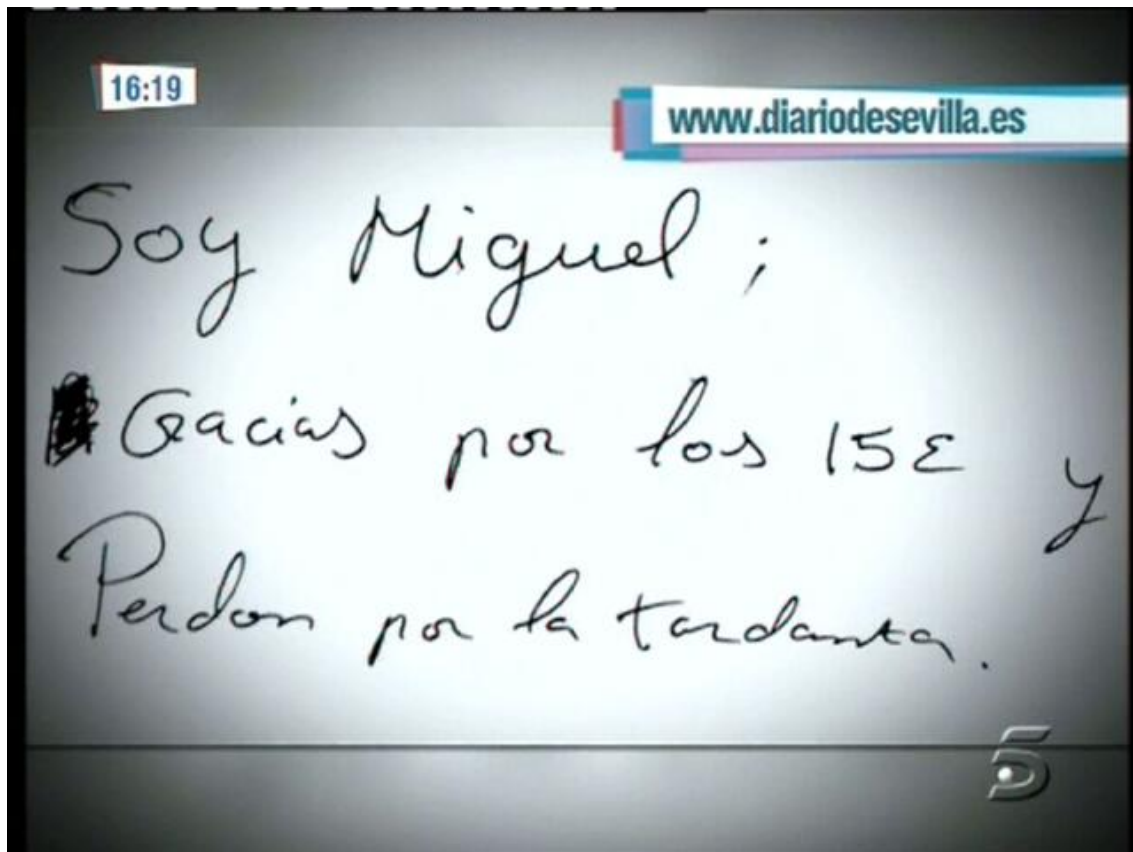 16:19
www.diariodesevilla.es
Soy Miguel;
Gracias por los 15€ y
Perdon por la tardanza.
5